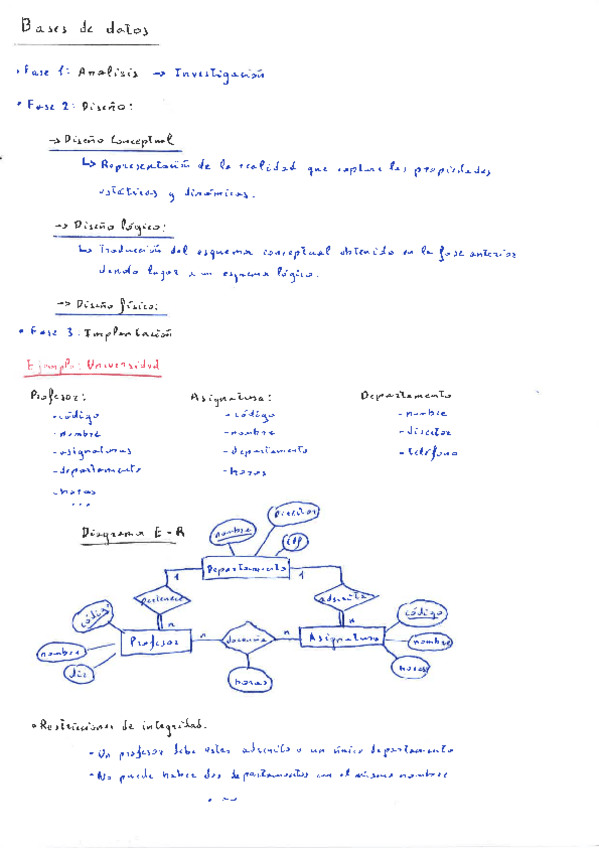 Bases de datos
• Fase 1: Analisis → Investigación
• Fase 2: Diseño:
→ Diseño Conceptual
↳ Representación de la realidad que capture las propiedades
estáticas y dinámicas.
→ Diseño lógico:
↳ Traducción del esquema conceptual obtenido en la fase anterior
dando lugar a un esquema lógico.
→ Diseño físico:
• Fase 3: Implantación
Ejemplo: Universidad
Profesor: Asignatura: Departamento
- código - código - nombre
- nombre - nombre - director
- asignaturas - departamento - teléfono
- departamento - horas
- horas
...
Diagrama E-R
nombre Director
Departamento
1 1
pertenece adscrita
código n n código
nombre Profesor n docencia n Asignatura nombre
dir horas horas
• Restricciones de integridad.
- Un profesor debe estar adscrito a un único departamento
- No puede haber dos departamentos con el mismo nombre